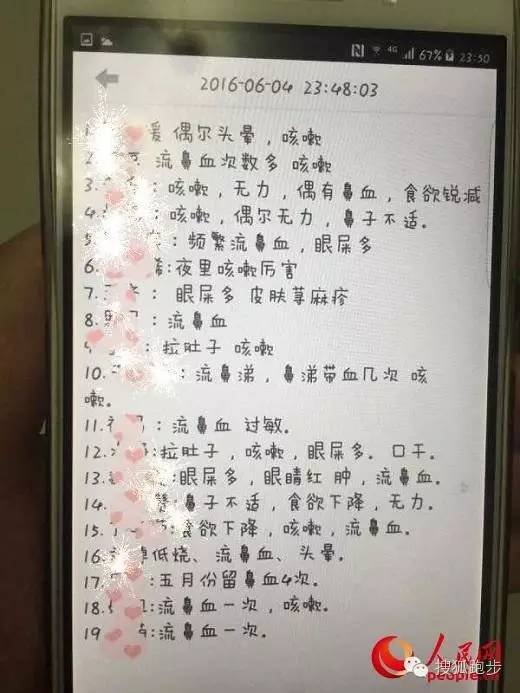 4G 67% 23:50
2016-06-04 23:48:03
1. 媛 偶尔头晕，咳嗽
2. 流鼻血次数多 咳嗽
3. ：咳嗽，无力，偶有鼻血，食欲锐减
4. ：咳嗽，偶尔无力，鼻子不适。
5. ：频繁流鼻血，眼屎多
6. :夜里咳嗽厉害
7. ： 眼屎多 皮肤荨麻疹
8. ：流鼻血
9. ：拉肚子 咳嗽
10. ：流鼻涕，鼻涕带血几次 咳
嗽。
11. ：流鼻血 过敏。
12. :拉肚子，咳嗽，眼屎多。口干。
13. :眼屎多，眼睛红 肿，流鼻血。
14. :鼻子不适，食欲下降，无力。
15. :食欲下降，咳嗽，流鼻血。
16. 低烧、流鼻血、头晕。
17. :五月份留鼻血4次。
18. :流鼻血一次，咳嗽。
19 :流鼻血一次。
人民网
people.cn
搜狐跑步